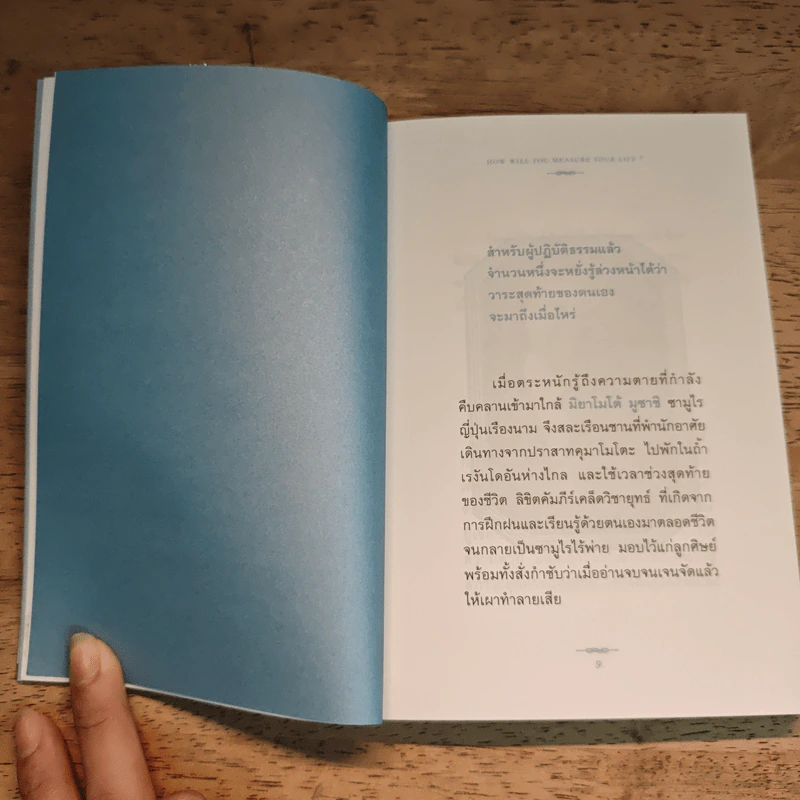 HOW WILL YOU MEASURE YOUR LIFE ?
สำหรับผู้ปฏิบัติธรรมแล้ว
จำนวนหนึ่งจะหยั่งรู้ล่วงหน้าได้ว่า
วาระสุดท้ายของตนเอง
จะมาถึงเมื่อไหร่
เมื่อตระหนักรู้ถึงความตายที่กำลัง
คืบคลานเข้ามาใกล้ มิยาโมโต้ มูซาชิ ซามูไร
ญี่ปุ่นเรืองนาม จึงสละเรือนชานที่พำนักอาศัย
เดินทางจากปราสาทคุมาโมโตะ ไปพักในถ้ำ
เรงันโดอันห่างไกล และใช้เวลาช่วงสุดท้าย
ของชีวิต ลิขิตคัมภีร์เคล็ดวิชายุทธ์ ที่เกิดจาก
การฝึกฝนและเรียนรู้ด้วยตนเองมาตลอดชีวิต
จนกลายเป็นซามูไรไร้พ่าย มอบไว้แก่ลูกศิษย์
พร้อมทั้งสั่งกำชับว่าเมื่ออ่านจบจนเจนจัดแล้ว
ให้เผาทำลายเสีย
9